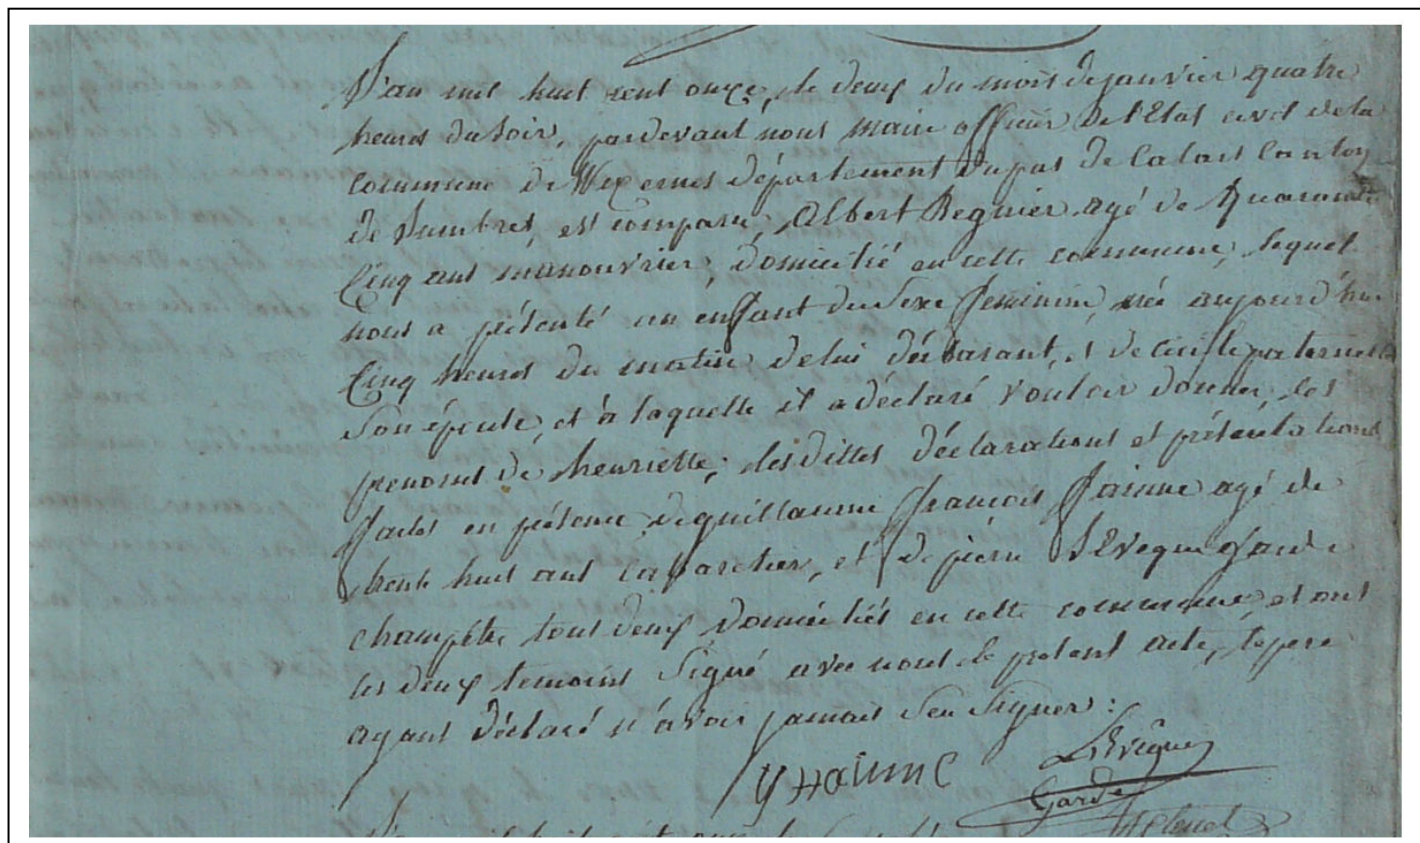 L'an mil huit cent onze, le deux du mois de janvier quatre
heures du soir, pardevant nous maire officier de l'Etat civil de la
commune de Wizernes département du pas de Calais Canton
de Lumbres, est comparu, Albert Regnier agé de Quarante
Cinq ans manouvrier, domicilié en cette commune, lequel
nous a présenté un enfant du sexe feminin, née aujourd'hui
Cinq heures du matin de lui déclarant, et de Cécile paternelle
son épouse, et à laquelle il a déclaré vouloir donner les
prenoms de henriette; lesdittes déclarations et présentations
faites en présence de guillaume françois hainne agé de
trente huit ans cabaretier, et de pierre LEveque garde
champêtre tous deux domiciliés en cette commune, et ont
les deux temoins signé avec nous le présent acte, le pere
ayant déclaré n'avoir jamais seu signer:
g hainne LEvêque
Garde